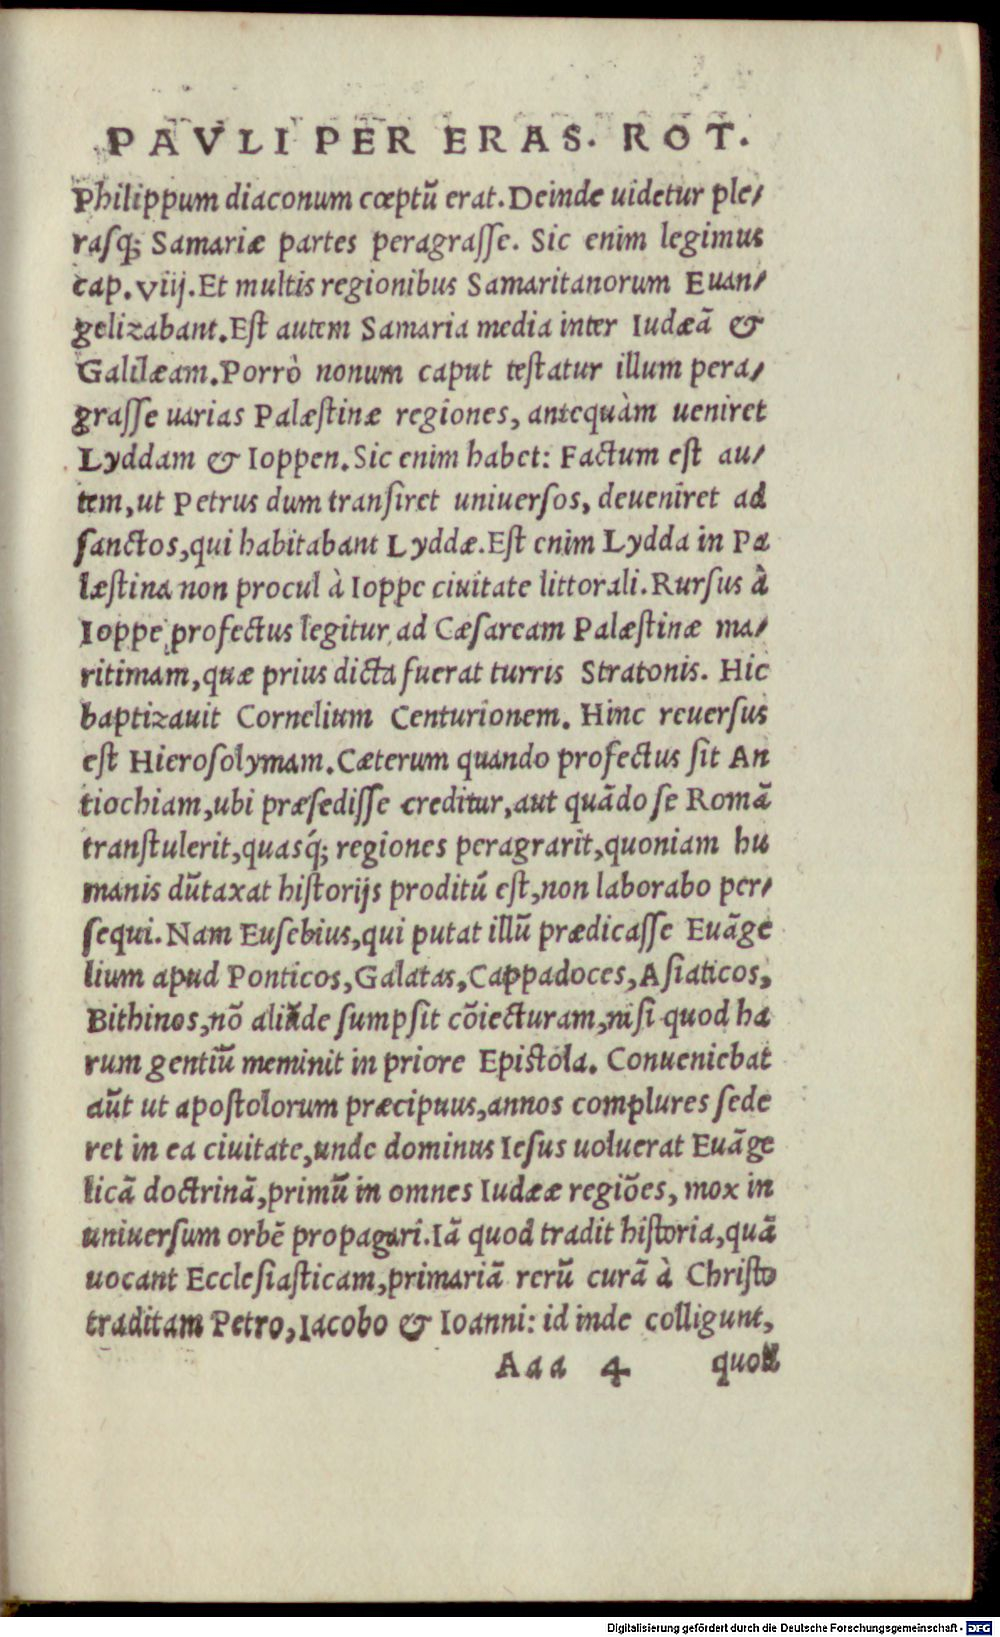 PAVLI PER ERAS. ROT.
Philippum diaconum cœptũ erat. Deinde uidetur ple-
rasq́; Samariæ partes peragrasse. Sic enim legimus
cap. viij. Et multis regionibus Samaritanorum Euan-
gelizabant. Est autem Samaria media inter Iudæã &
Galilæam. Porrò nonum caput testatur illum pera-
grasse uarias Palæstinæ regiones, antequàm ueniret
Lyddam & Ioppen. Sic enim habet: Factum est au-
tem, ut Petrus dum transiret uniuersos, deueniret ad
sanctos, qui habitabant Lyddæ. Est enim Lydda in Pa
læstina non procul à Ioppe ciuitate littorali. Rursus à
Ioppe profectus legitur ad Cæsaream Palæstinæ ma-
ritimam, quæ prius dicta fuerat turris Stratonis. Hic
baptizauit Cornelium Centurionem. Hinc reuersus
est Hierosolymam. Cæterum quando profectus sit An
tiochiam, ubi præsedisse creditur, aut quãdo se Romã
transtulerit, quasq́; regiones peragrarit, quoniam hu
manis dũtaxat historijs proditũ est, non laborabo per-
sequi. Nam Eusebius, qui putat illũ prædicasse Euãge
lium apud Ponticos, Galatas, Cappadoces, Asiaticos,
Bithinos, nõ aliũde sumpsit cõiecturam, nisi quod ha
rum gentiũ meminit in priore Epistola. Conueniebat
aũt ut apostolorum præcipuus, annos complures sede
ret in ea ciuitate, unde dominus Iesus uoluerat Euãge
licã doctrinã, primũ in omnes Iudææ regiões, mox in
uniuersum orbẽ propagari. Iã quod tradit historia, quã
uocant Ecclesiasticam, primariã rerũ curã à Christo
traditam Petro, Iacobo & Ioanni: id inde colligunt,
Aaa 4 quod
Digitalisierung gefördert durch die Deutsche Forschungsgemeinschaft - DFG